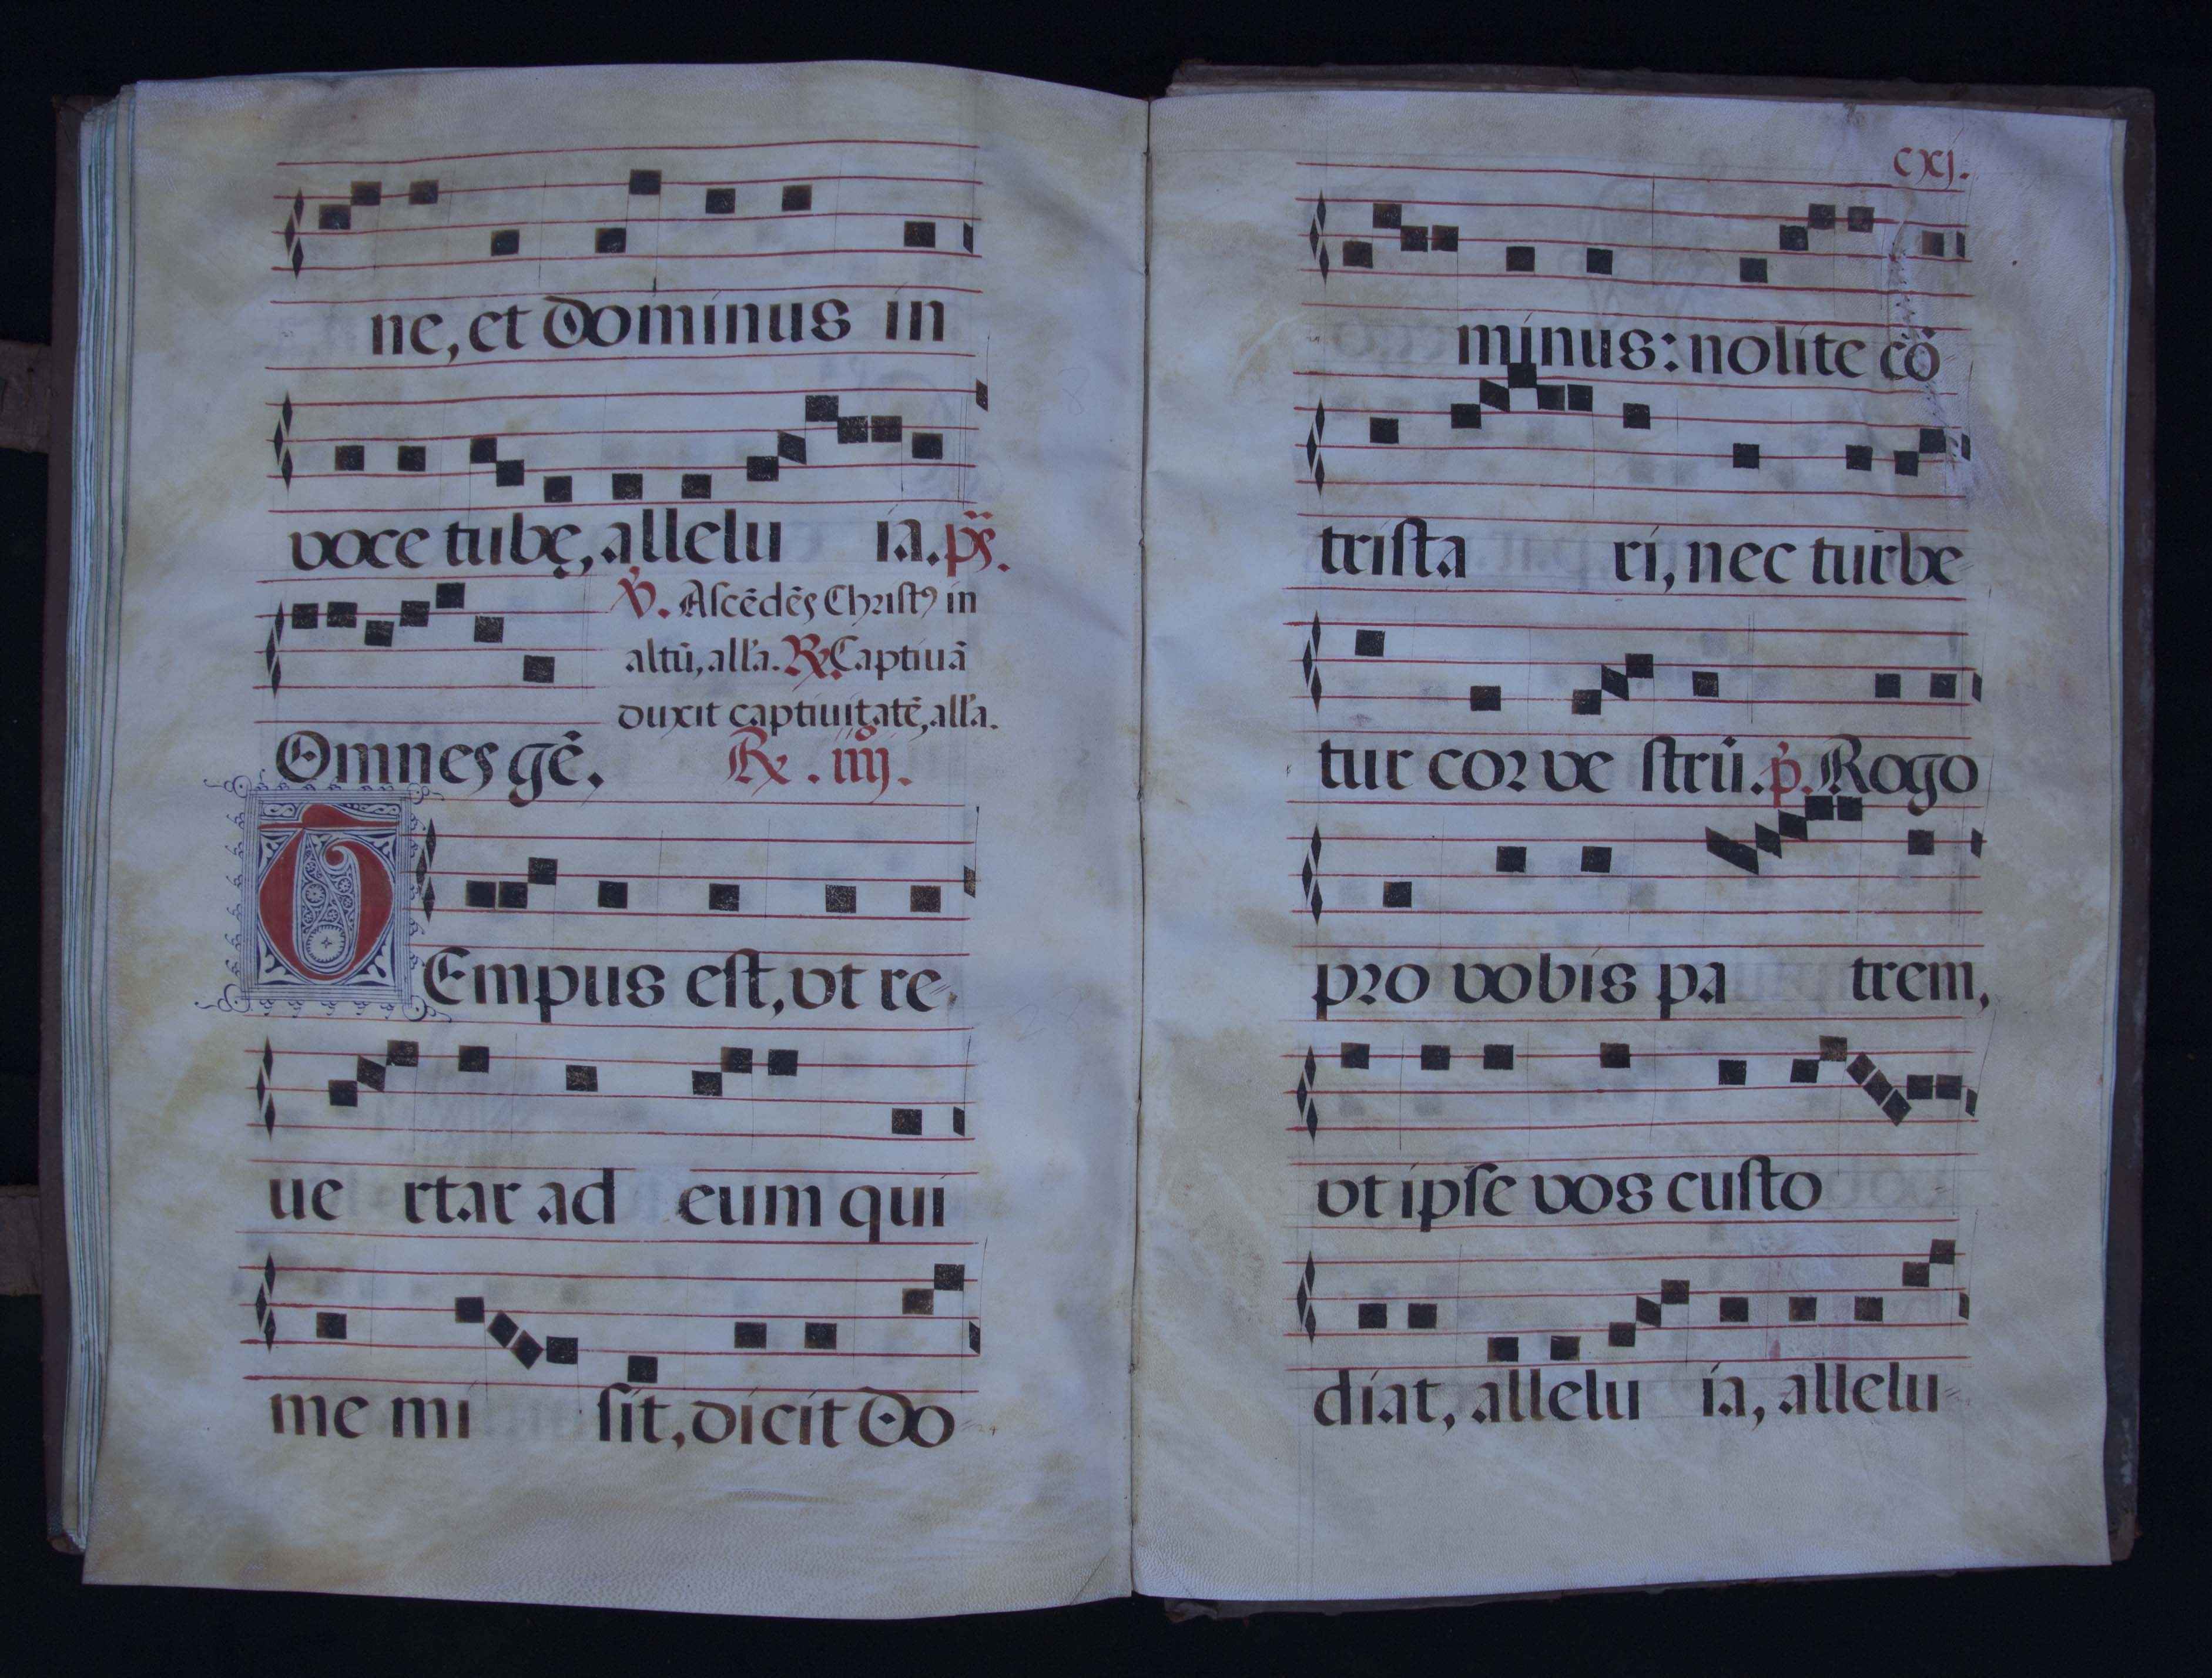 ne, et Dominus in
voce tubę, allelu ia. ps̃.
℣. Aſcẽdẽs Chriſtꝰ in
altũ, all'a. ℞. Captiuã
duxit captiuitatẽ, all'a.
Omnes gẽ. ℞. iiij.
TEmpus eſt, vt re-
ue rtar ad eum qui
me mi ſit, dicit Do-
cxj.
minus: nolite cõ
triſta ri, nec turbe-
tur cor ve ſtrũ. p̃. Rogo
pro vobis pa trem,
vt ipſe vos cuſto-
diat, allelu ia, allelu-